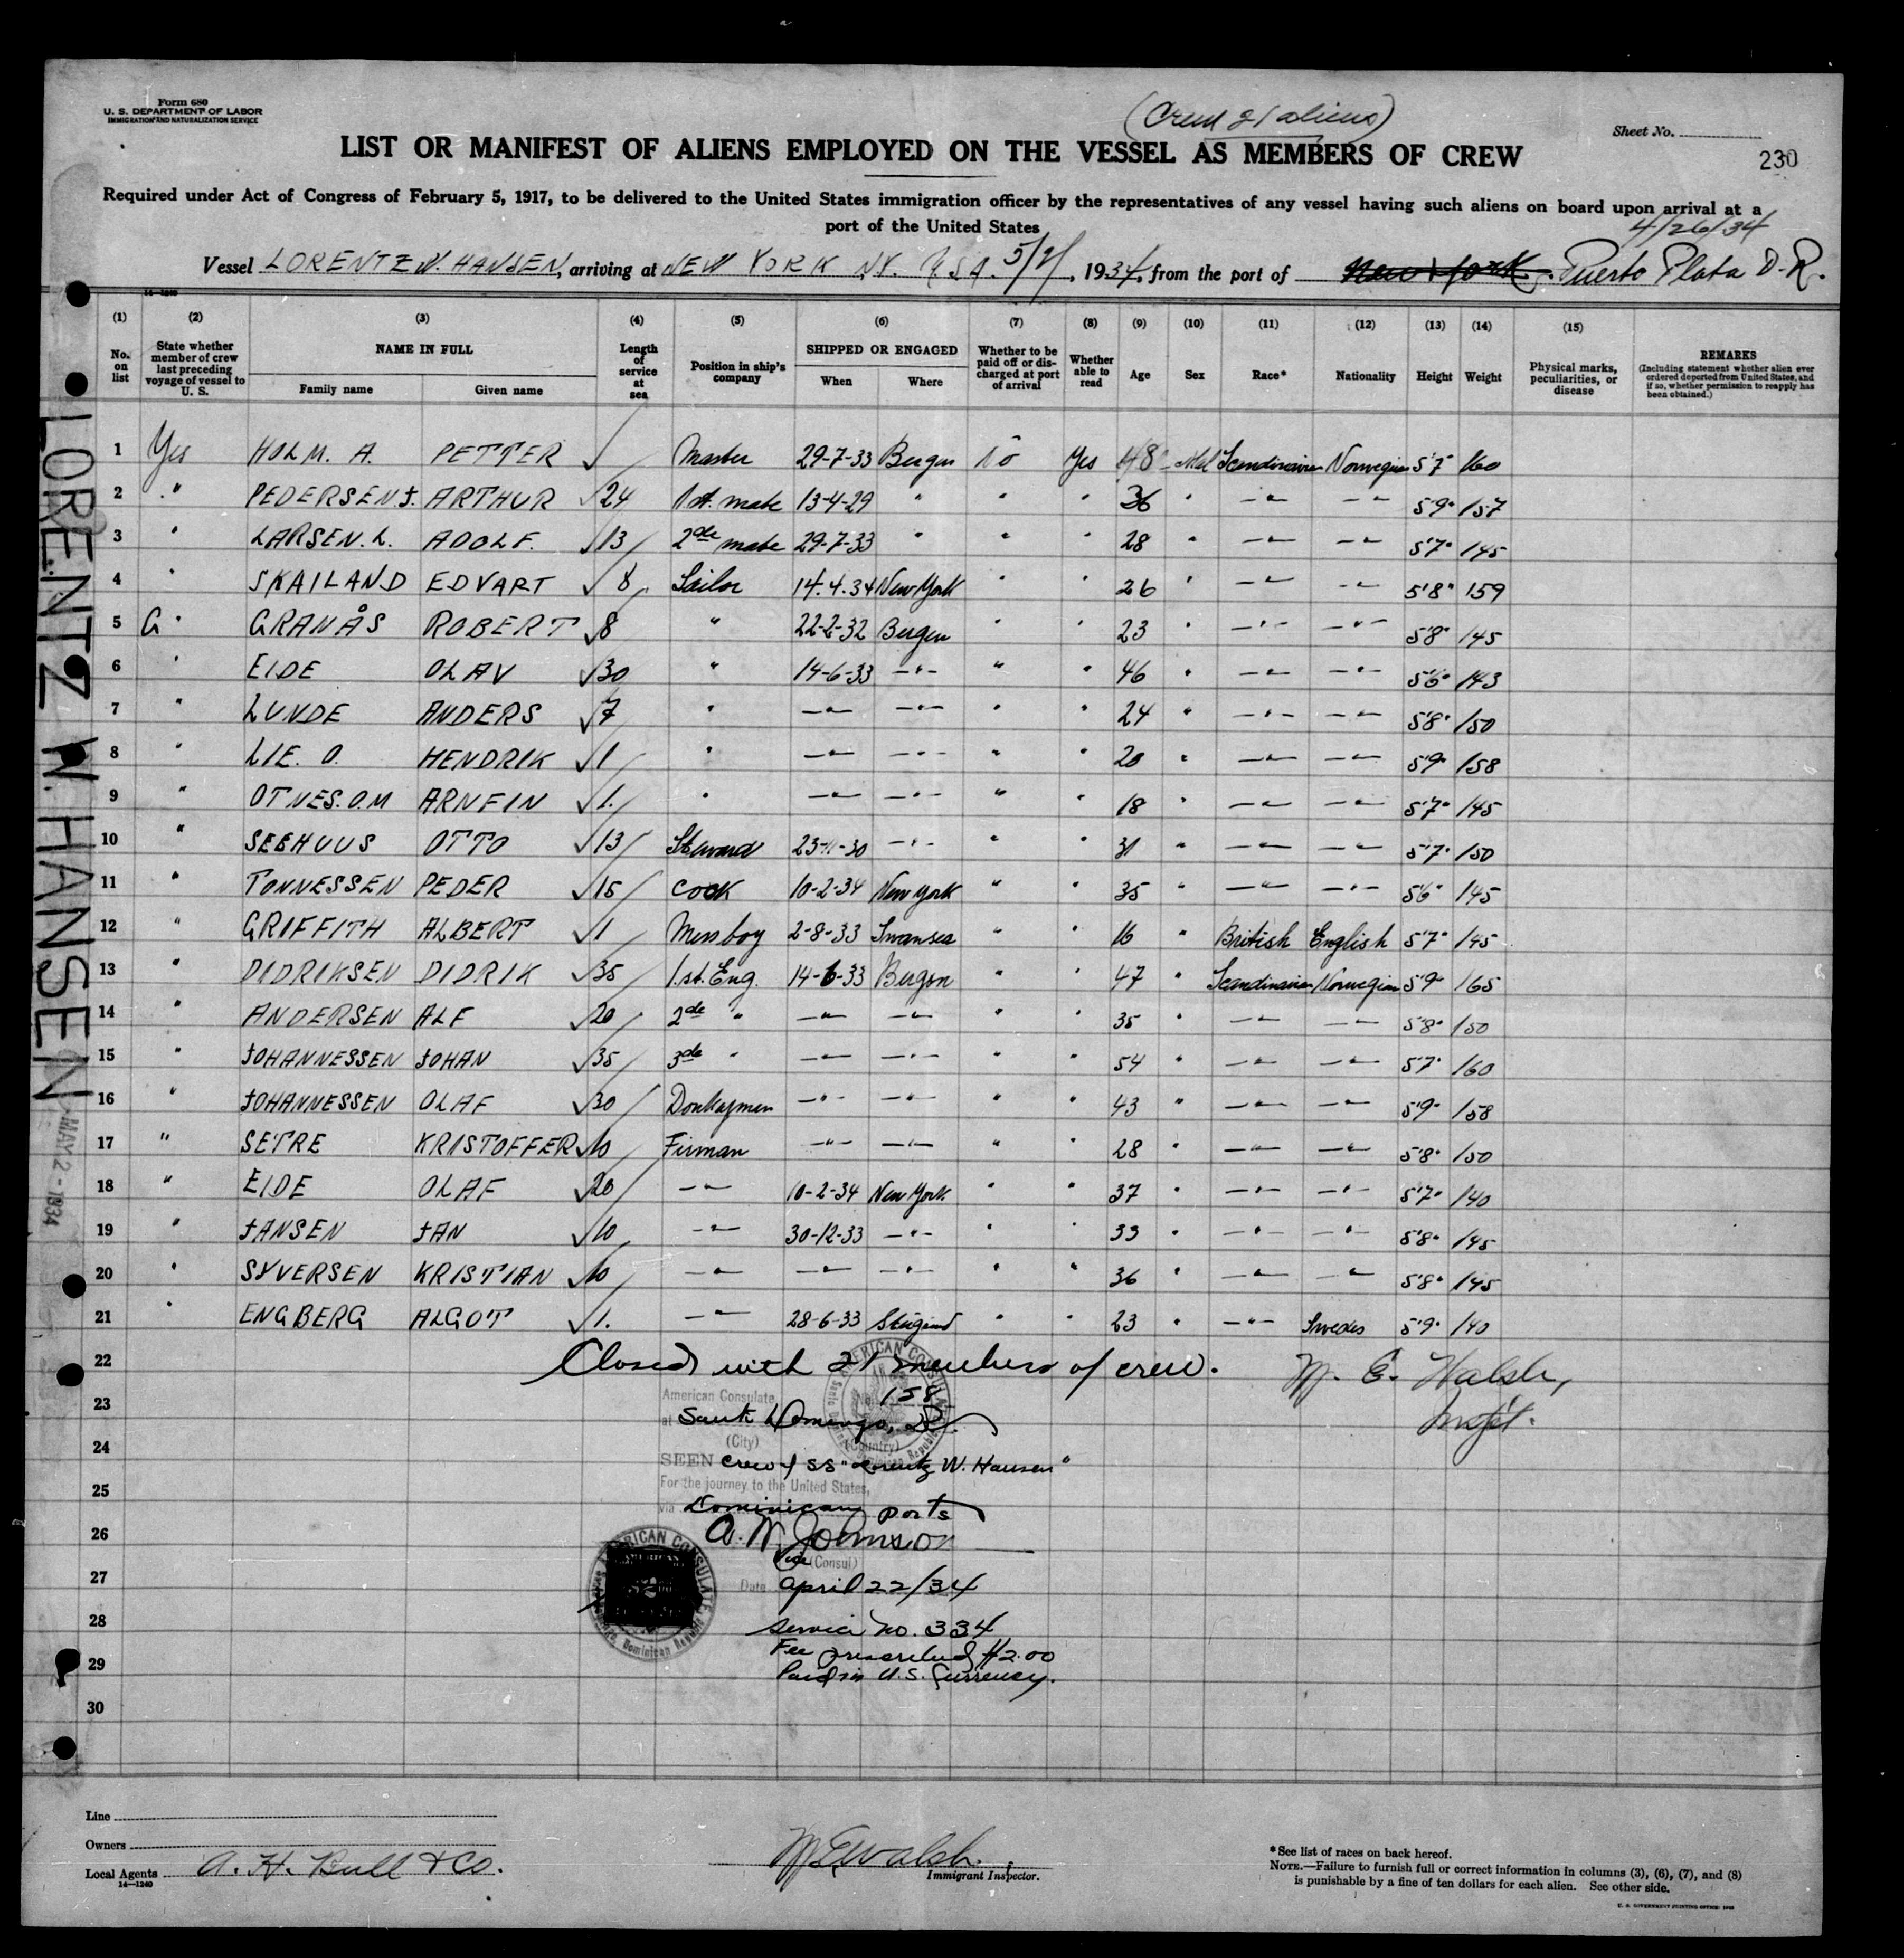 Form 680
U. S. DEPARTMENT OF LABOR
IMMIGRATION AND NATURALIZATION SERVICE
(Crew 21 aliens)
Sheet No.
LIST OR MANIFEST OF ALIENS EMPLOYED ON THE VESSEL AS MEMBERS OF CREW
230
Required under Act of Congress of February 5, 1917, to be delivered to the United States immigration officer by the representatives of any vessel having such aliens on board upon arrival at a
port of the United States
4/26/34
Vessel LORENTZ W. HANSEN, arriving at NEW YORK NY. USA. 5/2/, 1934, from the port of New York. Puerto Plata D.R.
14—1240
(1) (2) (3) (4) (5) (6) (7) (8) (9) (10) (11) (12) (13) (14) (15)
No. on list State whether member of crew last preceding voyage of vessel to U. S. NAME IN FULL Family name Given name Length of service at sea Position in ship's company SHIPPED OR ENGAGED When Where Whether to be paid off or discharged at port of arrival Whether able to read Age Sex Race* Nationality Height Weight Physical marks, peculiarities, or disease REMARKS (Including statement whether alien ever ordered deported from United States, and if so, whether permission to reapply has been obtained.)
1 Yes HOLM. A. PETTER √ Master 29-7-33 Bergen No Yes 48 Mal Scandinavian Norwegian 5'7" 160
2 " PEDERSEN. J. ARTHUR √ 24 1st. mate 13-4-29 " " " 36 " —"— —"— 5'9" 157
3 " LARSEN. L. ADOLF. √ 13 2de mate 29-7-33 " " " 28 " —"— —"— 5'7" 145
4 " SKAILAND EDVART √ 8 Sailor 14.4.34 New York " " 26 " —"— —"— 5'8" 159
5 G " GRANÅS ROBERT √ 8 " 22-2-32 Bergen " " 23 " —"— —"— 5'8" 145
6 " EIDE OLAV √ 30 " 14-6-33 —"— " " 46 " —"— —"— 5'6" 143
7 " LUNDE ANDERS √ 7 " —"— —"— " " 24 " —"— —"— 5'8" 150
8 " LIE. O. HENDRIK √ 1 " —"— —"— " " 20 " —"— —"— 5'9" 158
9 " OTNES. O.M ARNFIN √ 1. " —"— —"— " " 18 " —"— —"— 5'7" 145
10 " SEEHUUS OTTO √ 13 Steward 23-11-30 —"— " " 31 " —"— —"— 5'7" 150
11 " TONNESSEN PEDER √ 15 Cock 10-2-34 New York " " 35 " —"— —"— 5'6" 145
12 " GRIFFITH ALBERT √ 1 Messboy 2-8-33 Swansea " " 16 " British English 5'7" 145
13 " DIDRIKSEN DIDRIK √ 35 1.st. Eng. 14-6-33 Bergen " " 47 " Scandinavian Norwegian 5'9" 165
14 " ANDERSEN ALF √ 20 2de " —"— —"— " " 35 " —"— —"— 5'8" 150
15 " JOHANNESSEN JOHAN √ 35 3de " —"— —"— " " 54 " —"— —"— 5'7" 160
16 " JOHANNESSEN OLAF √ 30 Donkeyman —"— —"— " " 43 " —"— —"— 5'9" 158
17 " SETRE KRISTOFFER √ 10 Firman —"— —"— " " 28 " —"— —"— 5'8" 150
18 " EIDE OLAF √ 20 —"— 10-2-34 New York " " 37 " —"— —"— 5'7" 140
19 " JANSEN JAN √ 10 —"— 30-12-33 —"— " " 33 " —"— —"— 5'8" 145
20 " SYVERSEN KRISTIAN √ 10 —"— —"— —"— " " 36 " —"— —"— 5'8" 145
21 " ENGBERG ALGOT √ 1. —"— 28-6-33 " " 23 " —"— Swedes 5'9" 140
22 Closed with 21 members of crew. M. E. Walsh,
23 American Consulate No. 158
at Santo Domingo, D.R. Inspt.
24 (City) (Country)
SEEN crew of SS "Lorentz W. Hansen"
25 For the journey to the United States,
via Dominican ports
26 A. W. Johnson
Vice (Consul)
27 Date April 22/34
28 Service No. 334
Fee prescribed $2.00
29 Paid in U.S. Currency.
30
AMERICAN CONSULATE
Dominican Republic
LORENTZ W. HANSEN
MAY 2 - 1934
Line
Owners
Local Agents A. H. Bull & Co.
14—1240
M E Walsh.
Immigrant Inspector.
*See list of races on back hereof.
NOTE.—Failure to furnish full or correct information in columns (3), (6), (7), and (8)
is punishable by a fine of ten dollars for each alien. See other side.